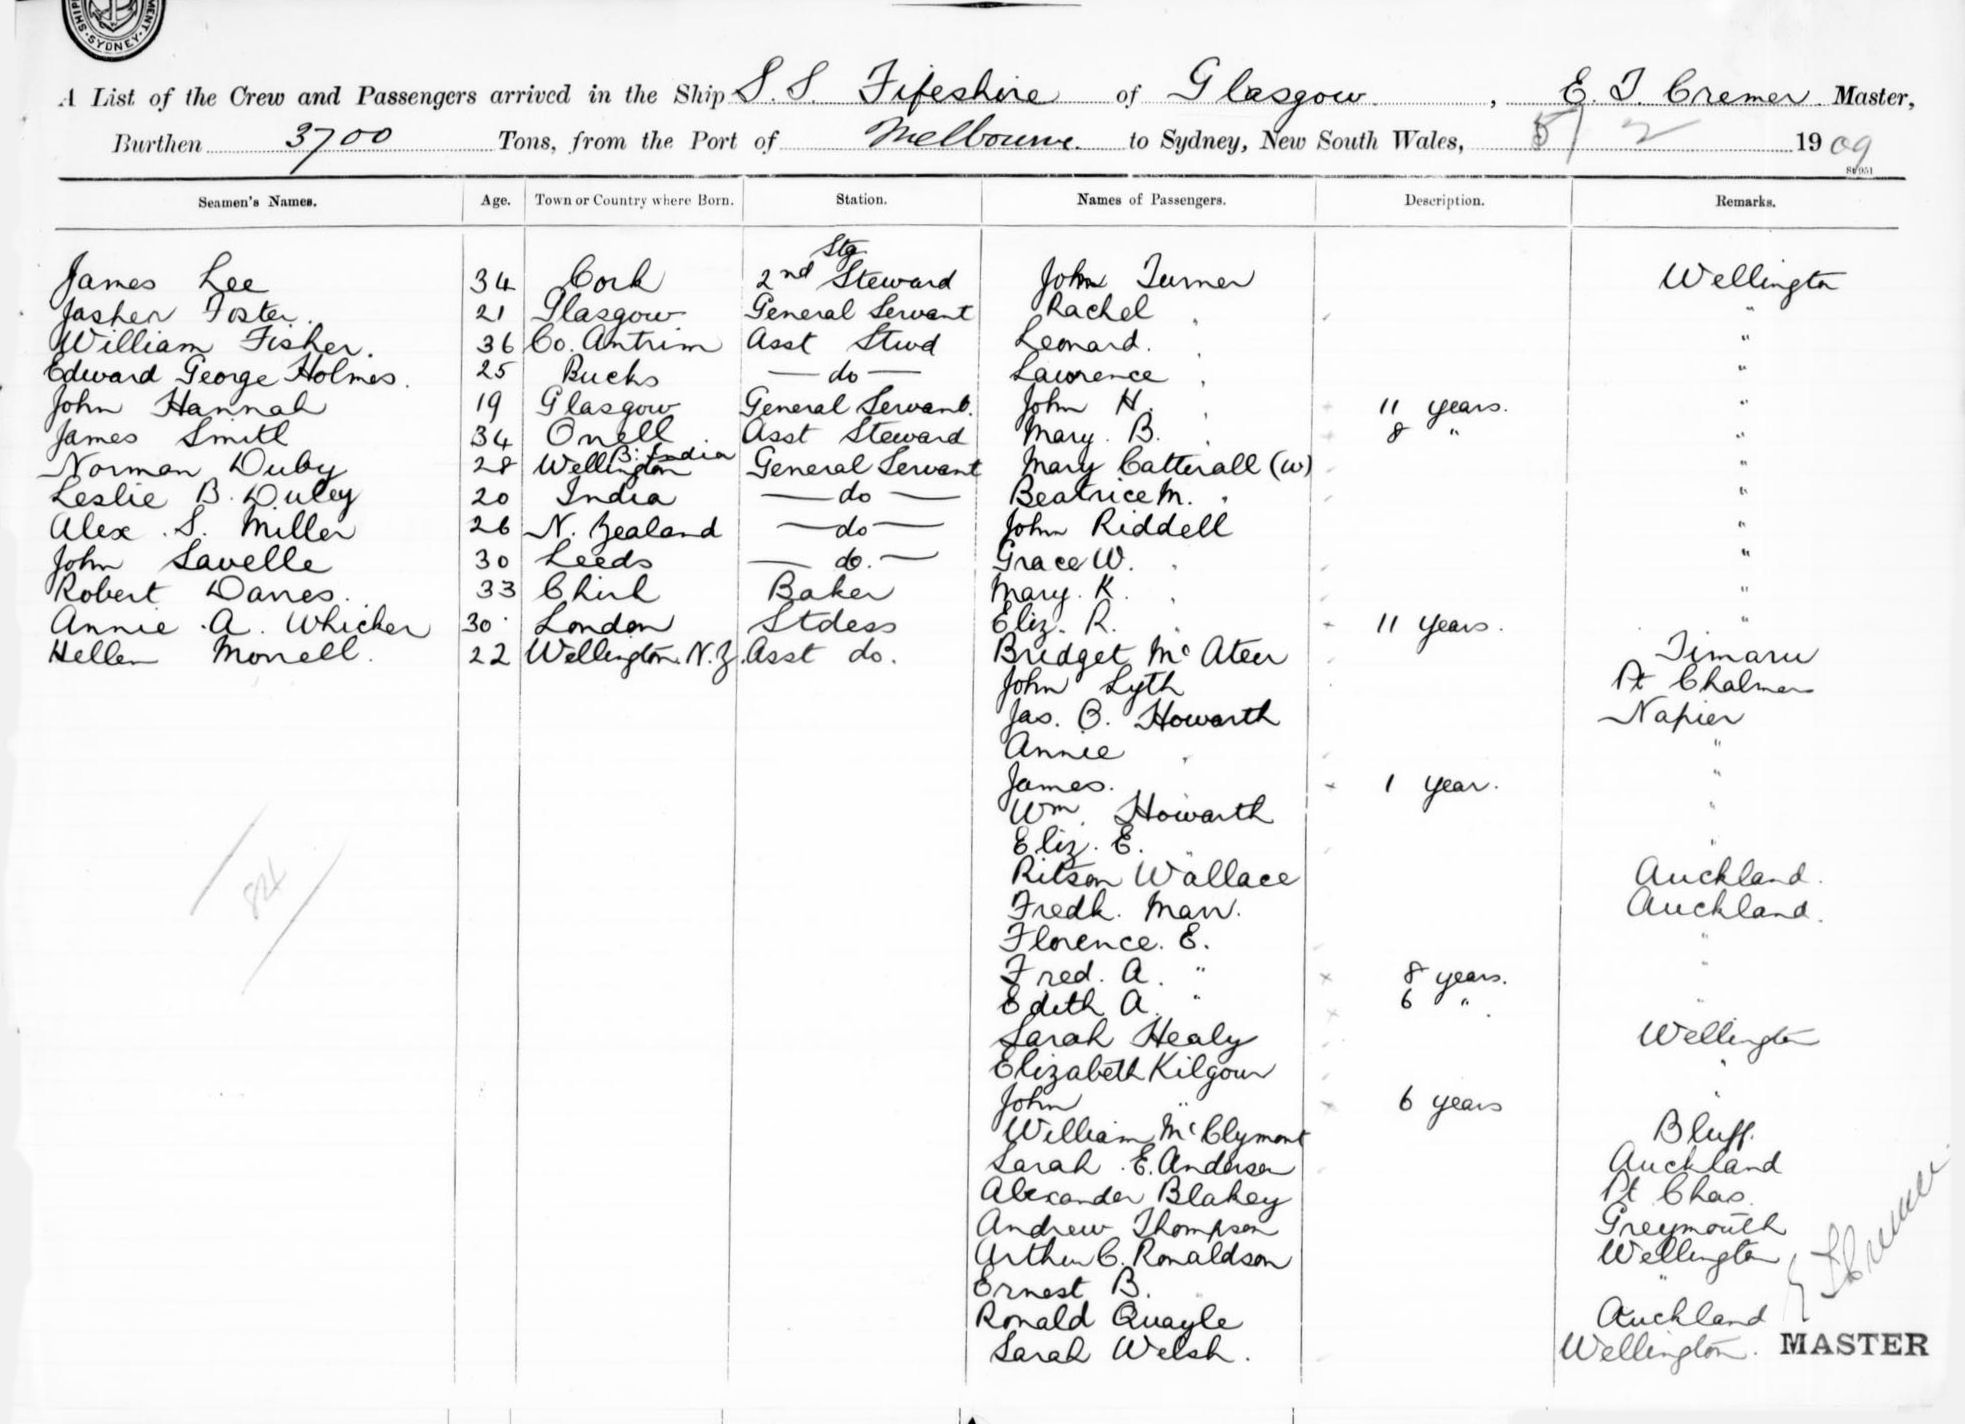 SHIP MENT SYDNEY
A List of the Crew and Passengers arrived in the Ship S.S. Fifeshire of Glasgow, E. T. Cremer Master,
Burthen 3700 Tons, from the Port of Melbourne to Sydney, New South Wales, 5/2 1909
Seamen's Names. Age. Town or Country where Born. Station. Names of Passengers. Description. Remarks.
Stg
James Lee 34 Cork 2nd Steward John Turner Wellington
Jasher Foster. 21 Glasgow General Servant Rachel " "
William Fisher. 36 Co. Antrim Asst Stwd Leonard. " "
Edward George Holmes. 25 Bucks — do — Lawrence " "
John Hannah 19 Glasgow General Servant. John H. " 11 years. "
James Smith 34 Orrell Asst Steward Mary B. " 8 " "
B. India
Norman Duby 28 Wellington General Servant Mary Catterall (W) "
Leslie B. Duley 20 India — do — Beatrice M. " "
Alex. S. Miller 26 N. Zealand — do — John Riddell "
John Lavelle 30 Leeds — do. — Grace W. " "
Robert Davies. 33 Chirk Baker Mary K. " "
Annie A. Whicker 30 London Stdess Eliz. R. " 11 years. "
Hellen Morrell. 22 Wellington. N.Z. Asst do. Bridget McAteer Timaru
John Lyth Pt Chalmers
Jas. B. Howarth Napier
Annie " "
James. 1 year. "
Wm. Howarth "
Eliz. E. " "
Ritson Wallace Auckland.
Fredk. Marr. Auckland.
Florence. E. "
Fred. A. " 8 years. "
Edith A. " 6 " "
Sarah Healy Wellington
Elizabeth Kilgour "
John " 6 years "
William McClymont Bluff.
Sarah E. Anderson Auckland
Alexander Blakey Pt Chas.
Andrew Thompson Greymouth
Arthur C. Ronaldson Wellington
Ernest B. " "
Ronald Quayle Auckland
Sarah Welsh. Wellington.
84
E T Cremer
MASTER